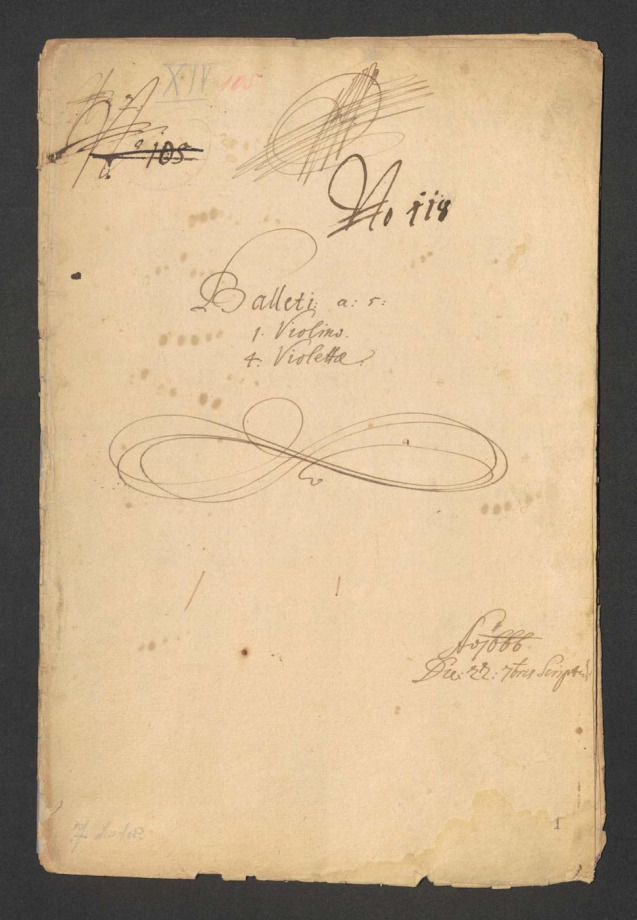 XIV 105
No 105
No 118
Balleti: a: 5:
1. Violino.
4. Violettæ.
Ao 1666
Die: 22: 7bris Script
1